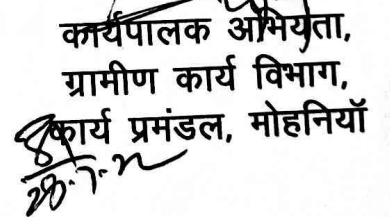 कार्यपालक अभियंता,
ग्रामीण कार्य विभाग,
कार्य प्रमंडल, मोहनियॉ
28.7.22